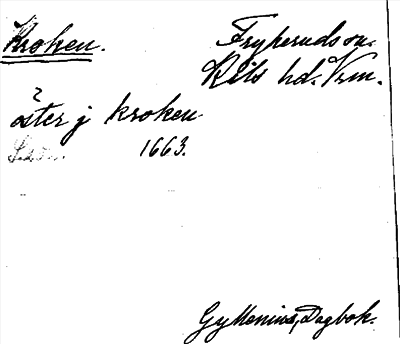 Kroken. Fryksunds sn.
Kils hd. Vrm.
?
öster j kroken
1663.
Gyllenius, Dagbok.